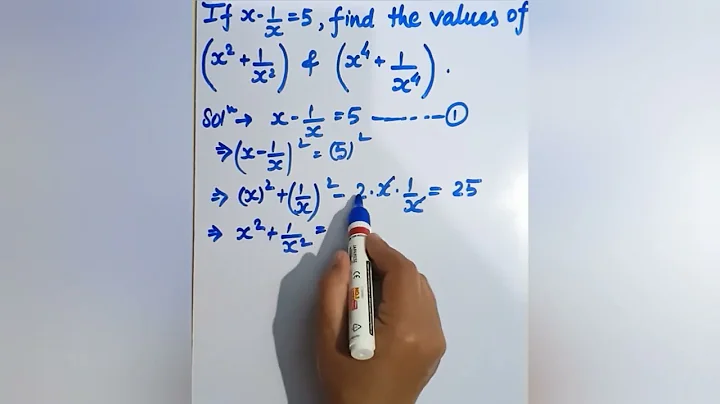 If x - 1/x = 5, find the values of
(x² + 1/x²) & (x⁴ + 1/x⁴).
Solⁿ → x - 1/x = 5 ------- ①
⇒ (x - 1/x)² = (5)²
⇒ (x)² + (1/x)² - 2 · x · 1/x = 25
⇒ x² + 1/x² =